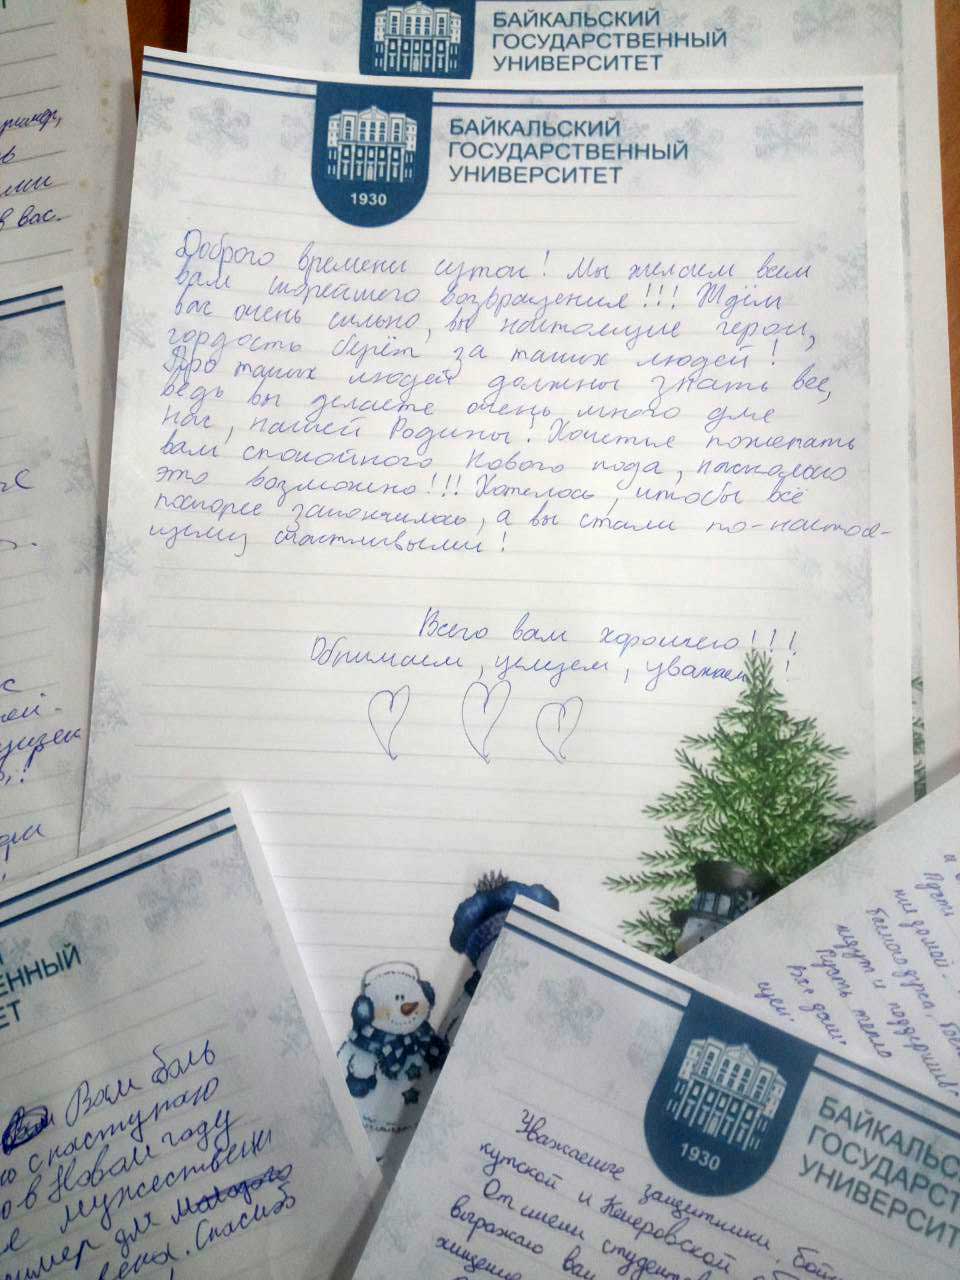 БАЙКАЛЬСКИЙ
ГОСУДАРСТВЕННЫЙ
УНИВЕРСИТЕТ
БАЙКАЛЬСКИЙ
ГОСУДАРСТВЕННЫЙ
УНИВЕРСИТЕТ
1930
Доброго времени суток! Мы желаем всем
вам скорейшего возвращения!!! Ждём
вас очень сильно, вы настоящие герои,
гордость берёт за таких людей!
Про таких людей должны знать все,
ведь вы делаете очень много для
нас, нашей Родины! Хочется пожелать
вам спокойного Нового года, насколько
это возможно!!! Хотелось, чтобы всё
поскорее закончилось, а вы стали по-настоя-
щему счастливыми!
Всего вам хорошего!!!
Обнимаем, целуем, уважаем!
в вас.
ЕННЫЙ
ЕТ
Вам боль
с наступаю
в Новом году
мужествен
для
Спасиб
1930
БАЙКАЛЬС
ГОСУДАРСТ
УНИВЕРСИТ
Уважаемые защитники, бой
кутской и Кемеровской
От имени студент
выражаю вам
хищение
Пусть
ния домой.
боевого духа,
ждут и поддержив
Пусть тепло
Все дош